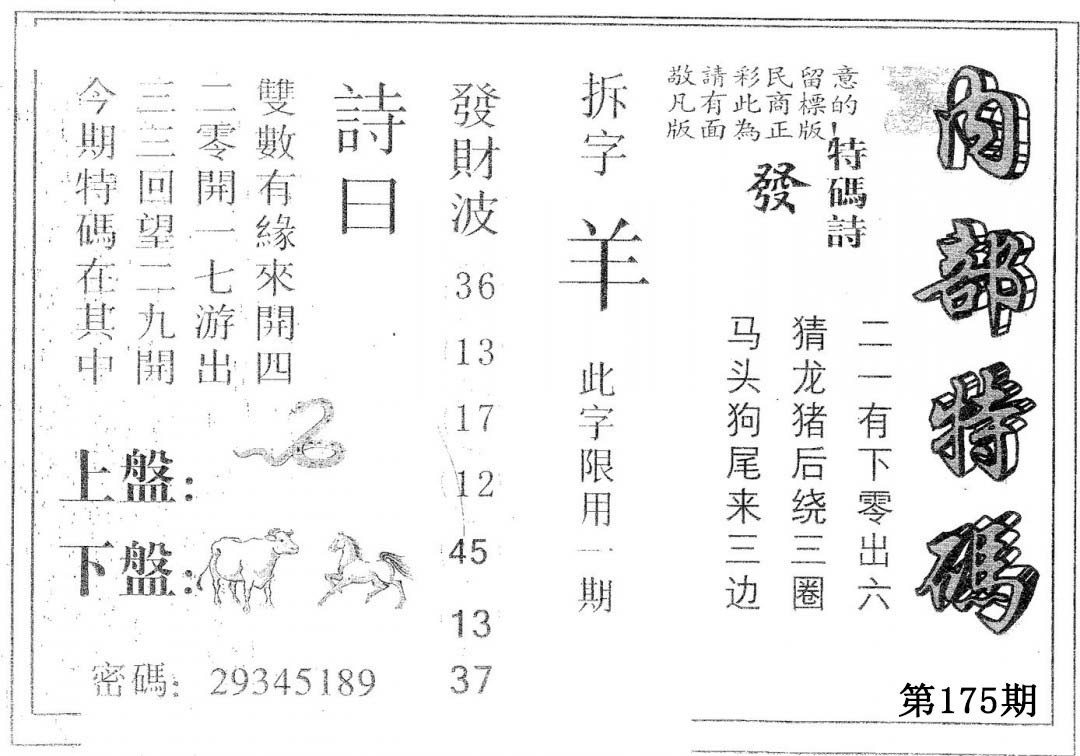 內部特碼
第175期
敬請彩民留意
凡有此商標的
版面為正版
特碼詩
發
二一有下零出六
猜龙猪后绕三圈
马头狗尾来三边
拆字
羊
此字限用一期
發財波
36
13
17
12
45
13
37
詩曰
雙數有緣來開四
二零開一七游出
三三回望二九開
今期特碼在其中
上盤：
下盤：
密碼：29345189